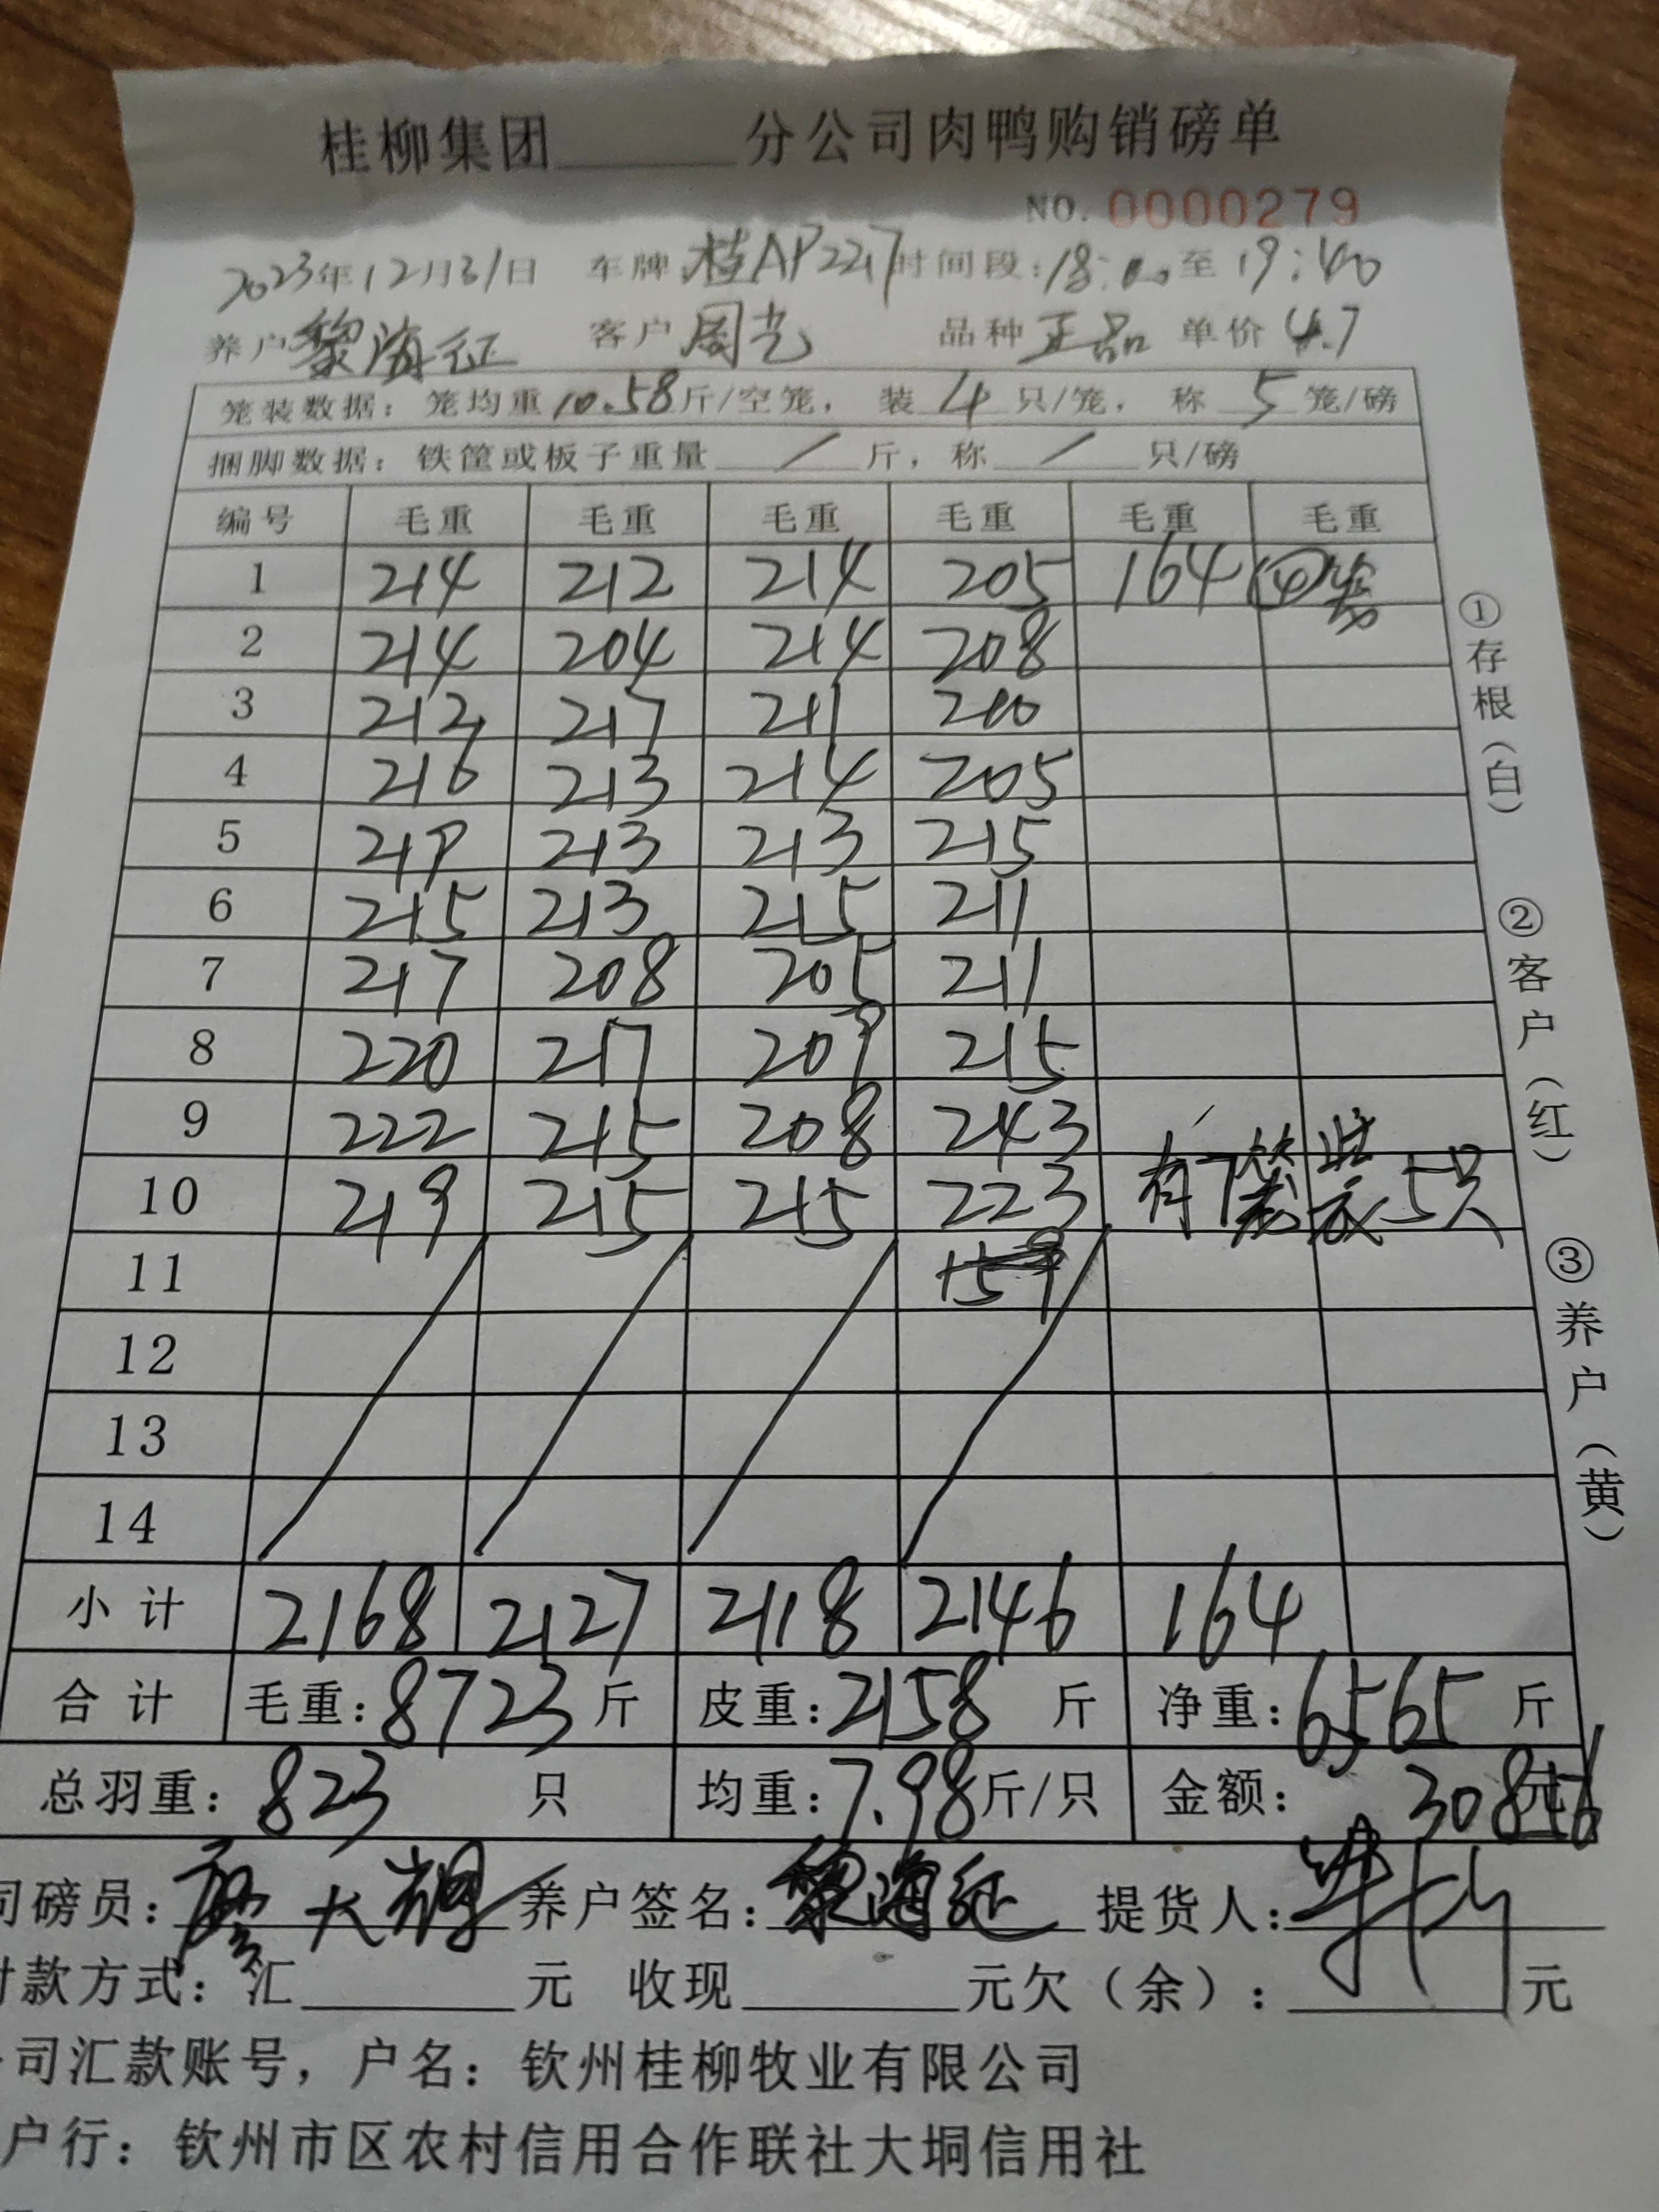 桂柳集团______分公司肉鸭购销磅单
NO. 0000279
2023年12月31日 车牌 桂AP2217 时间段:18:00至19:40
养户 黎海征 客户 周光 品种 正品 单价 4.7
笼装数据: 笼均重10.58斤/空笼, 装 4 只/笼, 称 5 笼/磅
捆脚数据: 铁筐或板子重量 / 斤, 称 / 只/磅
编号 毛重 毛重 毛重 毛重 毛重 毛重
1 214 212 214 205 164 ④笼
2 214 204 214 208
3 212 217 211 210
4 216 213 214 205
5 219 213 213 215
6 215 213 215 211
7 217 208 205 211
8 220 217 209 215
9 222 215 208 243
10 219 215 215 223 有7笼装5只
11 159
12
13
14
小计 2168 2127 2118 2146 164
合计 毛重:8723斤 皮重:2158 斤 净重:6565 斤
总羽重: 823 只 均重:7.98斤/只 金额: 30856元
司磅员: 廖大 养户签名: 黎海征 提货人:
付款方式: 汇______元 收现______元欠(余):______元
司汇款账号, 户名: 钦州桂柳牧业有限公司
户行: 钦州市区农村信用合作联社大垌信用社
①存根(白)
②客户(红)
③养户(黄)